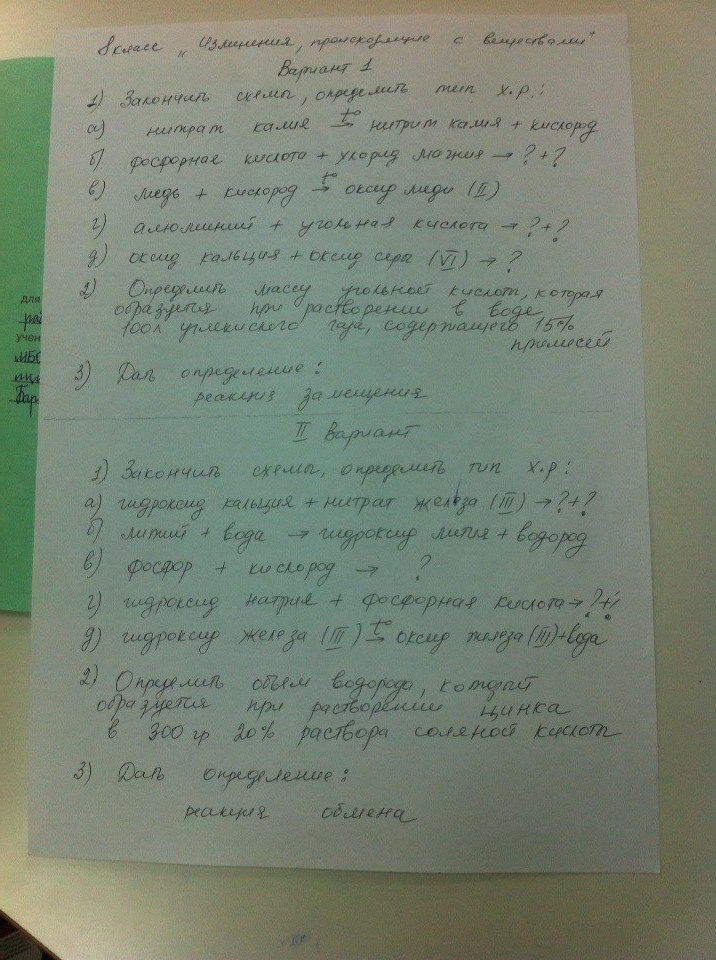 8 класс „Изменения, происходящие с веществами"
Вариант 1
1) Закончить схемы, определить тип х.р.:
а) нитрат калия t° → нитрит калия + кислород
б) фосфорная кислота + хлорид магния → ? + ?
в) медь + кислород t° → оксид меди (II)
г) алюминий + угольная кислота → ? + ?
д) оксид кальция + оксид серы (VI) → ?
2) Определить массу угольной кислоты, которая
образуется при растворении в воде
100л углекислого газа, содержащего 15%
примесей
3) Дать определение:
реакция замещения
II Вариант
1) Закончить схемы, определить тип х.р:
а) гидроксид кальция + нитрат железа (III) → ? + ?
б) литий + вода → гидроксид лития + водород
в) фосфор + кислород → ?
г) гидроксид натрия + фосфорная кислота → ? + ?
д) гидроксид железа (III) t° → оксид железа (III) + вода
2) Определить объем водорода, который
образуется при растворении цинка
в 300 гр 20% раствора соляной кислоты
3) Дать определение:
реакция обмена
для
учен